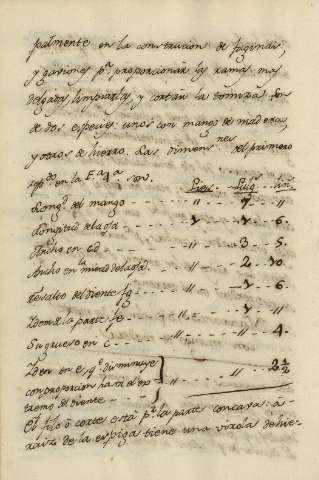 palmente en la construcion de faginas,
y gaviones pª. proporcionar las ramas mas
delgadas, limpiarlas, y cortar la tomiza. son
de dos especies: unos con mango de madera,
y otros de hierro. Las dimens.nes del primero
en la Fª 1ª son.
Pies. Pulg.s Lin.s
Long.d del mango - - - - " - - 7 - - "
Longitud de la - - - 1 - - 1 - - 6.
Ancho en cd - - - - " - - 3 - - 5.
Ancho en la mitad de la - - - " - - 2 - - 10.
Resalto del diente fg - - - " - - 1 - - 6.
Idem x la parte fe - - - " - - 1 - - "
Su grueso en c - - - " - - " - - 4.
Iden en e, q.e disminuye
con proporcion hasta el ex-
tremo del diente - - - " - - " - - 2 1/2
El filo ó corte está pr. la parte concava: á
raiz de la espiga tiene una virola de hie-